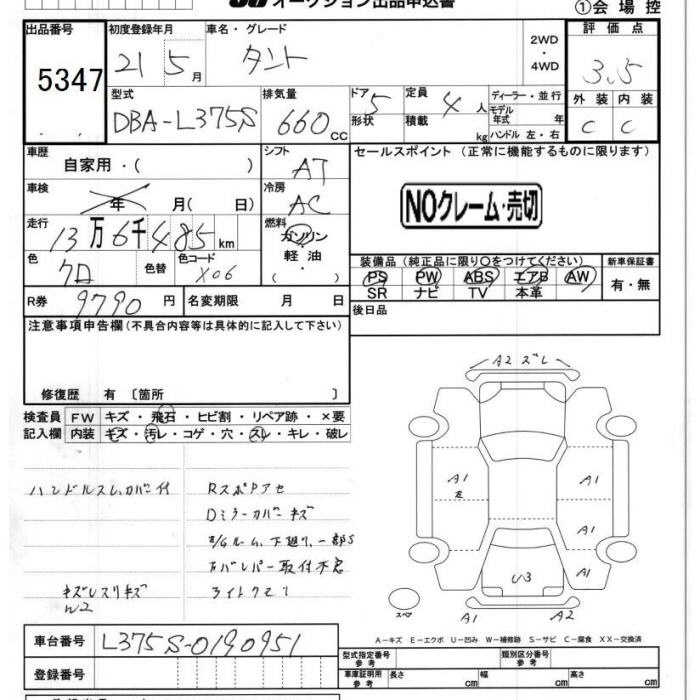 オークション出品申込書
①会場控
出品番号 初度登録年月 車名・グレード 2WD・4WD 評価点
5347 21 5月 タント 3.5
型式 排気量 ドア 定員 ディーラー・並行 外装 内装
DBA-L375S 660CC 5 4人 モデル年式 年 C C
形状 積載 kg ハンドル 左・右
車歴 シフト セールスポイント (正常に機能するものに限ります)
自家用・( ) AT
車検 年 月( 日) 冷房 AC
NOクレーム・売切
走行 13万6千485km 燃料 ガソリン・軽油・( )
色 クロ 色替 色コード X06
装備品 (純正品に限り○をつけてください) 新車保証書
PS PW ABS エアB AW 有・無
SR ナビ TV 本革
R券 9790円 名変期限 月 日
後日品
注意事項申告欄 (不具合内容等は具体的に記入して下さい)
修復歴 有 〔箇所 〕
検査員 FW キズ・飛石・ヒビ割・リペア跡・×要
記入欄 内装 キズ・汚レ・コゲ・穴・スレ・キレ・破レ
A2 ズレ
ハンドルスレ、カバー付 RスポPアセ
Dミラーカバーキズ
ルーム、下廻り、一部S
キズ W2
A1 左 A1
A1
U3 A1
スペア A1 A2
A-キズ E-エクボ U-凹み W-補修跡 S-サビ C-腐食 XX-交換済
車台番号 L375S-0190951
型式指定番号 参考 類別区分番号 参考
登録番号 車庫証明用 参考 長さ cm 幅 cm 高さ cm